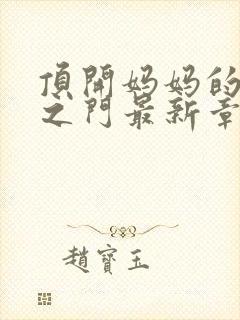 頂開媽媽的
之門最新章
趙寶玉